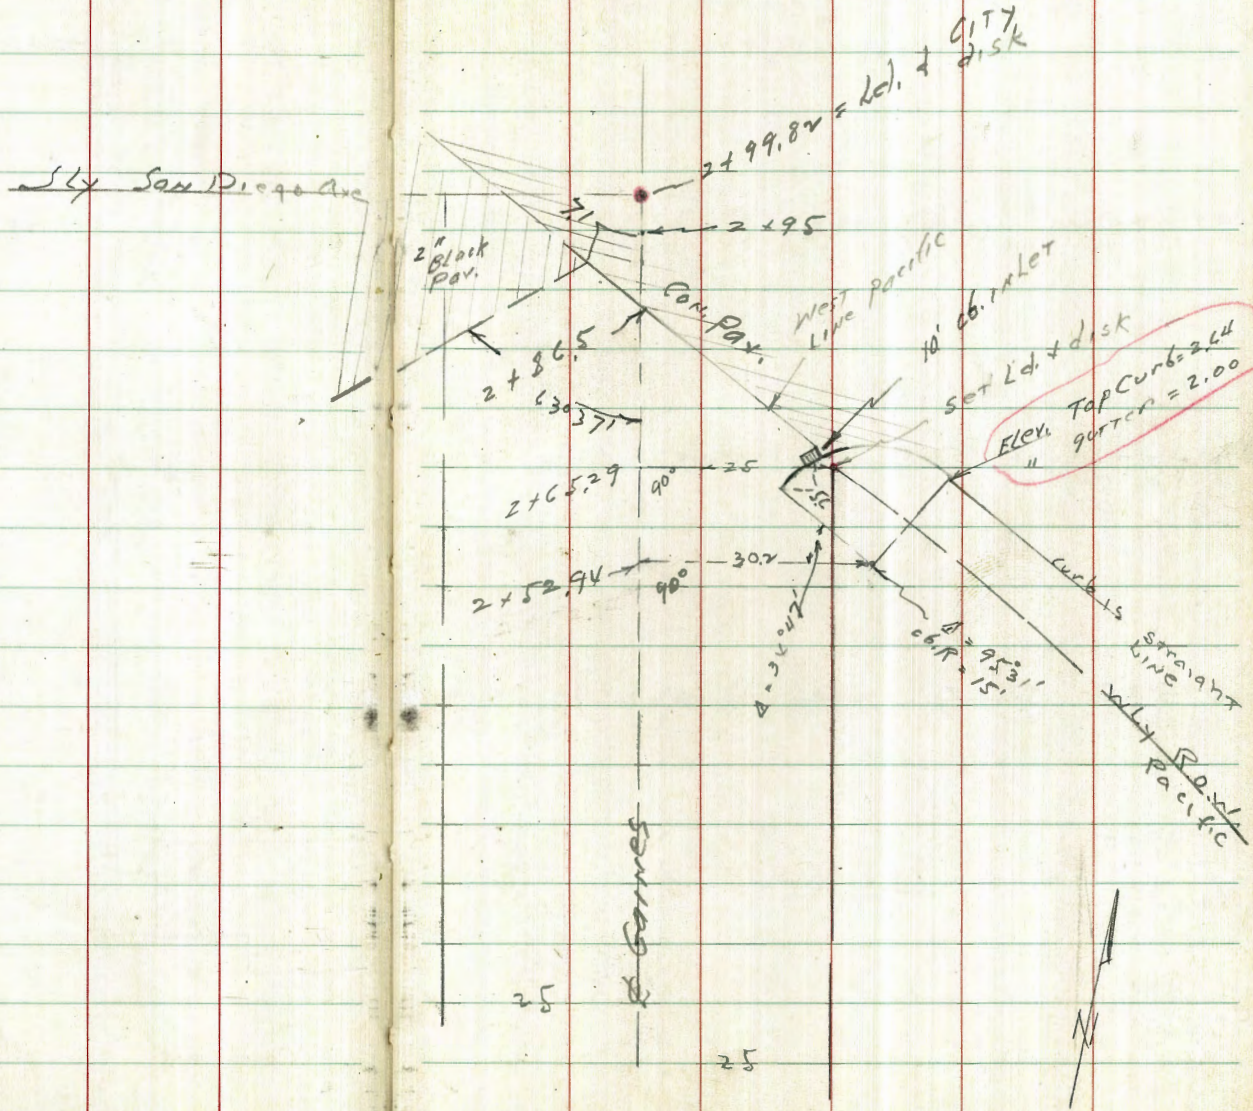 CITY
2+99.82 = Ld. & disk
Sly San Diego Ave
7.1
2+95
2" Black
Pav.
Con. Pav.
West Pacific
Line
10' cb. inLet
Set Ld. & disk
Elev. Top Curb = 2.64
" gutter = 2.00
2+86.5
2+65.29
90°
25
2+52.94
90°
30.2
Δ = 95°31'
cb. R = 15'
curb is
straight
Line
Wly R.O.W.
Pacific
Gaines
25
25
N